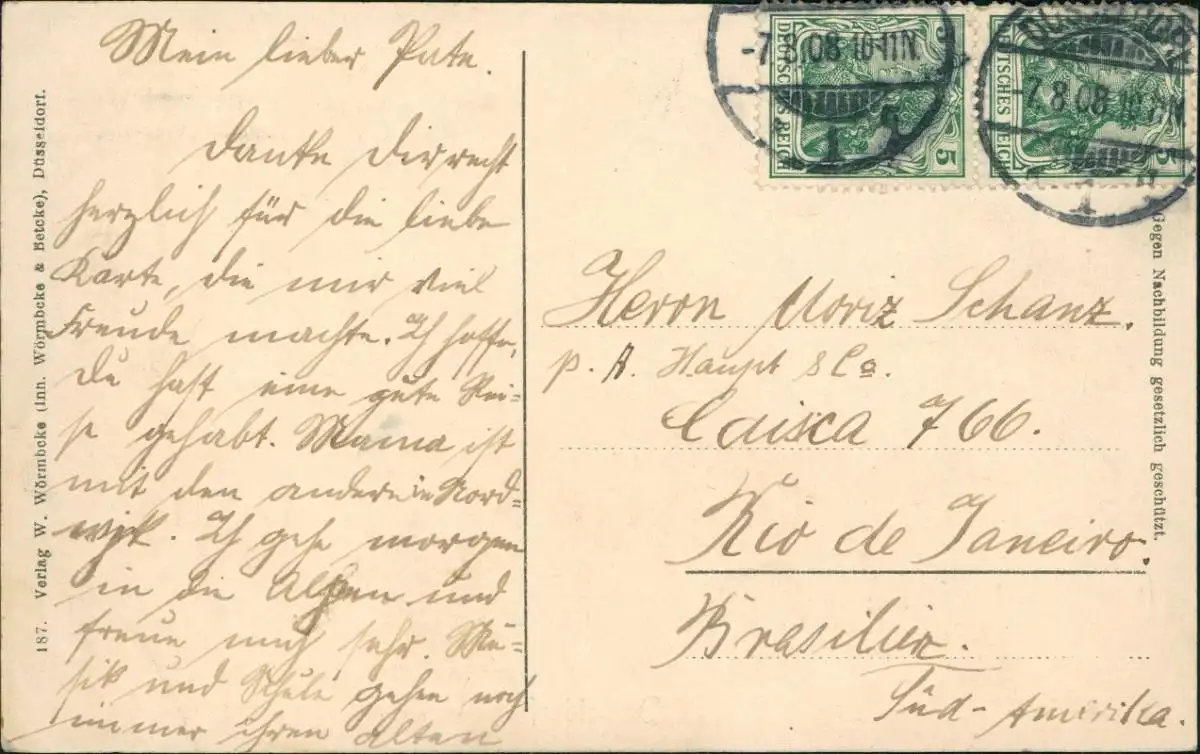 Mein lieber Pate.
Danke Dir recht
herzlich für die liebe
Karte, die mir viel
Freude machte. Ich hoffe,
Du hast eine gute Rei-
se gehabt. Mama ist
mit den andern in Nord-
wijk. Ich gehe morgen
in die Alpen und
freue mich sehr. Mu-
sik und Schule gehen noch
immer ihren alten
187. Verlag W. Wörmbcke (Inh. Wörmbcke & Betcke), Düsseldorf.
DEUTSCHES REICH
5
-7.8.08 10-11N.
1
DEUTSCHES REICH
5
DÜSSELDORF
-7.8.08 10-11N
1
Gegen Nachbildung gesetzlich geschützt.
Herrn Moriz Schanz.
p. A. Haupt & Co.
Caixa 766.
Rio de Janeiro.
Brasilien.
Süd-Amerika.